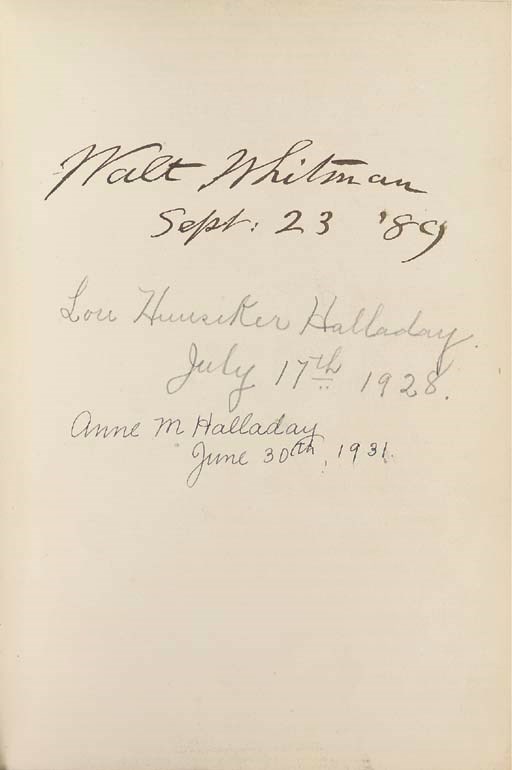 Walt Whitman
Sept: 23 '89
Lou Hunsiker Halladay.
July 17th 1928.
Anne M Halladay
June 30th, 1931.